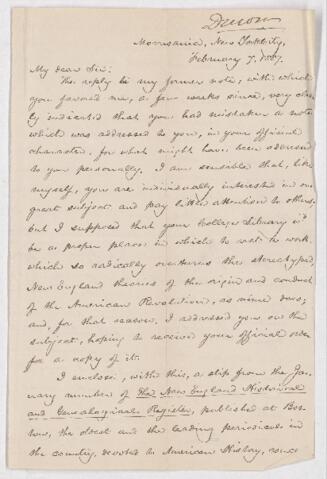 Dawson
Morrisania, New York City,
February 7, 1887.
My dear Sir:
The reply to my former note, with which
you favored me, a few weeks since, very clear-
ly indicated that you had mistaken a note
which was addressed to you, in your official
character, for which might have been addressed
to you personally. I am sensible that, like
myself, you are individually interested in one
great subject and pay little attention to others;
but I supposed that your College Library w'd
be a proper place in which to a work
which so radically overturns the stereotyped,
New England theories of the origin and conduct
of the American Revolution, as mine does;
and, for that reason, I addressed you on the
subject, hoping to received your official order
for a copy of it.
I enclose, with this, a slip from the Jan-
uary number of The New England Historical
and Genealogical Register, published at Bos-
ton, the oldest and the leading periodical in
the country, devoted to American History,